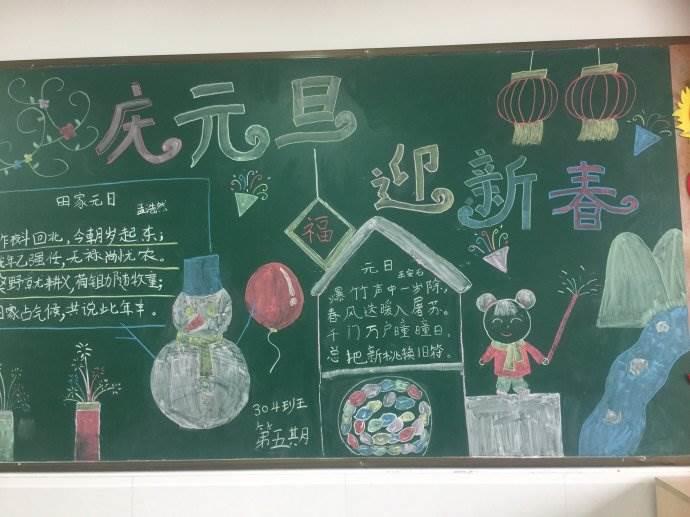 庆元旦
迎新春
福
田家元日
孟浩然
斗回北，今朝岁起东；
年已强仕，无禄尚忧农。
野就耕父，荷锄随牧童；
田家占气候，共说此年丰。
元日
王安石
爆竹声中一岁除，
春风送暖入屠苏。
千门万户曈曈日，
总把新桃换旧符。
304班
第五期